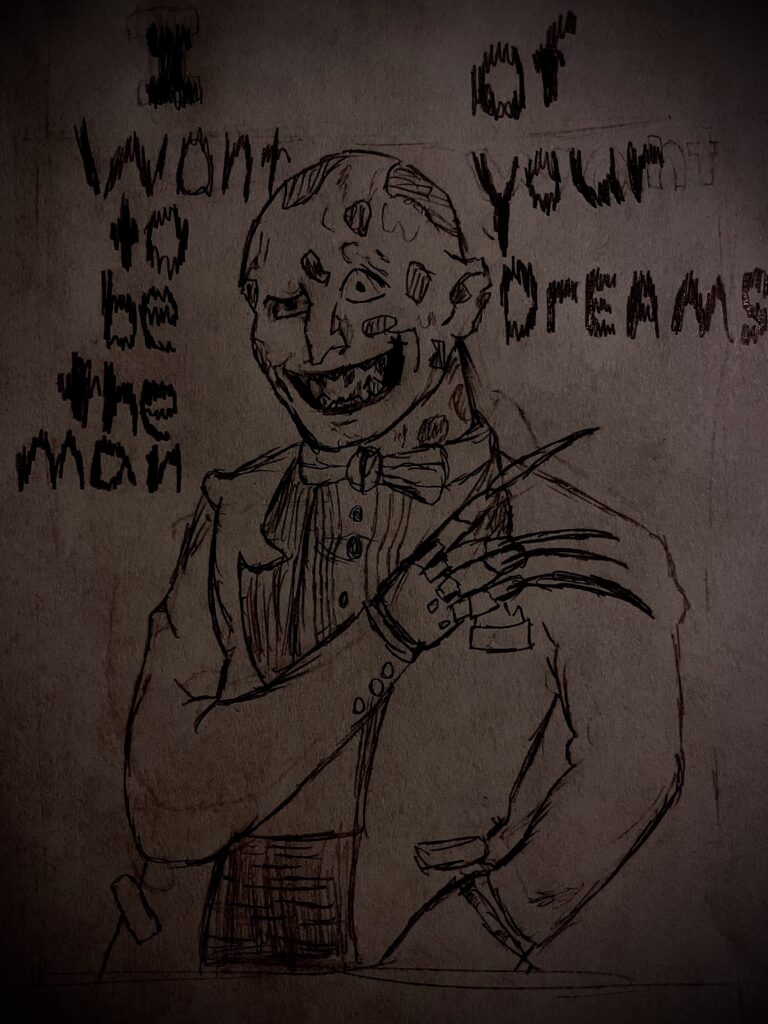 I
Want
to
be
the
man
of
your
DreAms